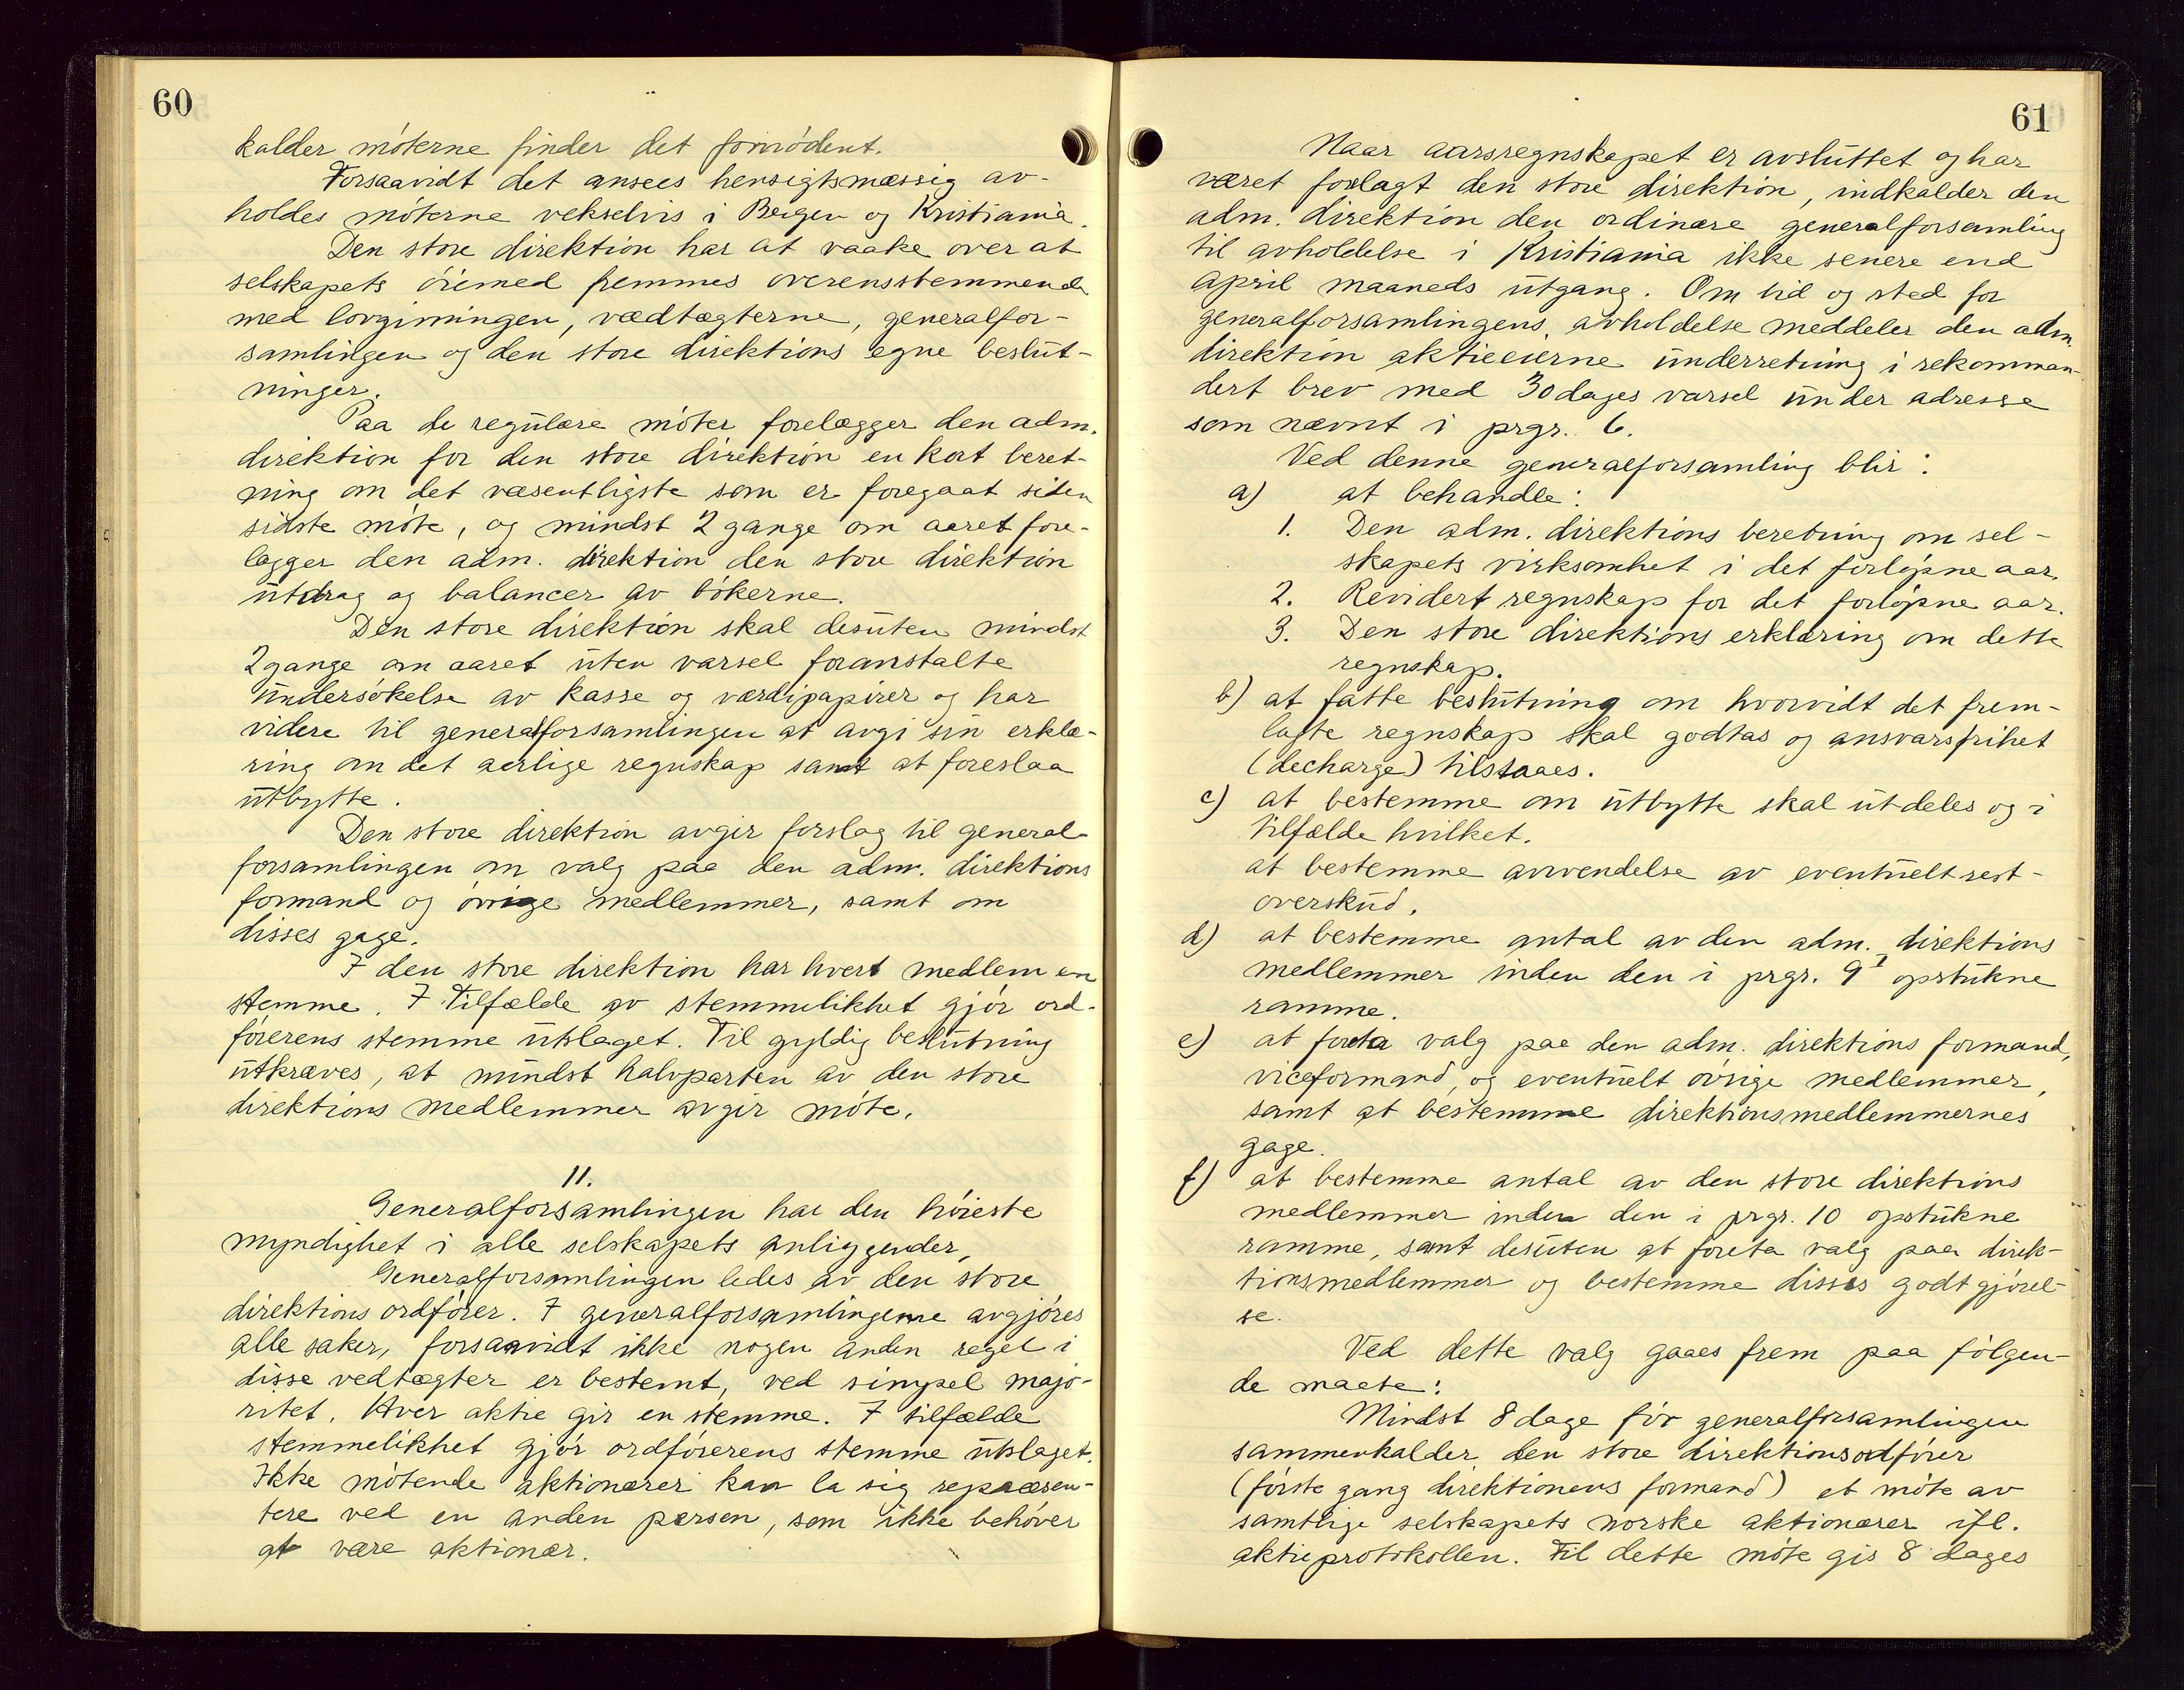 60
kalder møterne finder det fornødent.
Forsaavidt det ansees hensigtsmæssig av-
holdes møterne vekselvis i Bergen og Kristiania.
Den store direktion har at vaake over at
selskapets øiemed fremmes overensstemmende
med lovgivningen, vædtægterne, generalfor-
samlingen og den store direktions egne beslut-
ninger.
Paa de regulære møter forelægger den adm.
direktion for den store direktion en kort beret-
ning om det væsentligste som er foregaat siden
sidste møte, og mindst 2 gange om aaret fore-
lægger den adm. direktion den store direktion
utdrag og balancer av bøkerne.
Den store direktion skal desuten mindst
2 gange om aaret uten varsel foranstalte
undersøkelse av kasse og værdipapirer og har
videre til generalforsamlingen at avgi sin erklæ-
ring om det aarlige regnskap samt at foreslaa
utbytte.
Den store direktion avgir forslag til general-
forsamlingen om valg paa den adm. direktions
formand og øvrige medlemmer, samt om
disses gage.
I den store direktion har hvert medlem en
stemme. I Tilfælde av stemmelikhet gjør ord-
førerens stemme utslaget. Til gyldig beslutning
utkræves, at mindst halvparten av den store
direktions medlemmer avgir møte.
11.
Generalforsamlingen har den høieste
myndighet i alle selskapets anliggender,
Generalforsamlingen ledes av den store
direktions ordfører. I generalforsamlingerne avgjøres
alle saker, forsaavidt ikke nogen anden regel i
disse vedtægter er bestemt, ved simpel majo-
ritet. Hver aktie gir en stemme. I tilfælde
stemmelikhet gjør ordførerens stemme utslaget.
Ikke møtende aktionærer kan la sig repræsen-
tere ved en anden person, som ikke behøver
at være aktionær.
61
Naar aarsregnskapet er avsluttet og har
været forlagt den store direktion, indkalder den
adm. direktion den ordinære generalforsamling
til avholdelse i Kristiania ikke senere end
april maaneds utgang. Om tid og sted for
generalforsamlingens avholdelse meddeler den adm.
direktion aktieeierne underretning i rekomman-
dert brev med 30 dages varsel under adresse
som nævnt i prgr. 6.
Ved denne generalforsamling blir:
a) at behandle:
1. Den adm. direktions beretning om sel-
skapets virksomhet i det forløpne aar.
2. Revidert regnskap for det forløpne aar.
3. Den store direktions erklæring om dette
regnskap.
b) at fatte beslutning om hvorvidt det frem-
lagte regnskap skal godtas og ansvarsfrihet
(decharge) tilstaaes.
c) at bestemme om utbytte skal utdeles og i
tilfælde hvilket.
at bestemme anvendelse av eventuelt rest-
overskud.
d) at bestemme antal av den adm. direktions
medlemmer inden den i prgr. 9 opstukne
ramme.
e) at foreta valg paa den adm. direktions formand,
viceformand, og eventuelt øvrige medlemmer,
samt at bestemme direktionsmedlemmernes
gage.
f) at bestemme antal av den store direktions
medlemmer inden den i prgr. 10 opstukne
ramme, samt desuten at foreta valg paa direk-
tionsmedlemmer og bestemme disses godtgjørel-
se.
Ved dette valg gaaes frem paa følgen-
de maate:
Mindst 8 dage før generalforsamlingen
sammenkalder den store direktionsordfører
(første gang direktionens formand) et møte av
samtlige selskapets norske aktionærer ifl.
aktieprotokollen. Til dette møte gis 8 dages